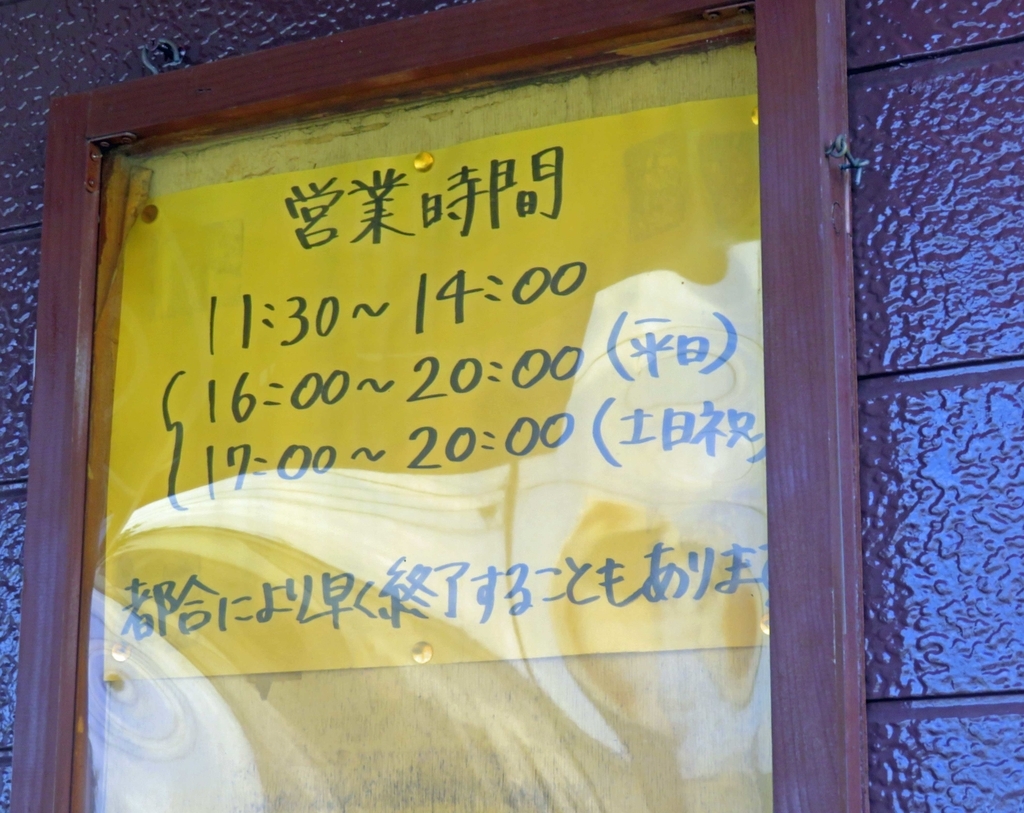 営業時間
11:30～14:00
16:00～20:00(平日)
17:00～20:00(土日祝)
都合により早く終了することもあります